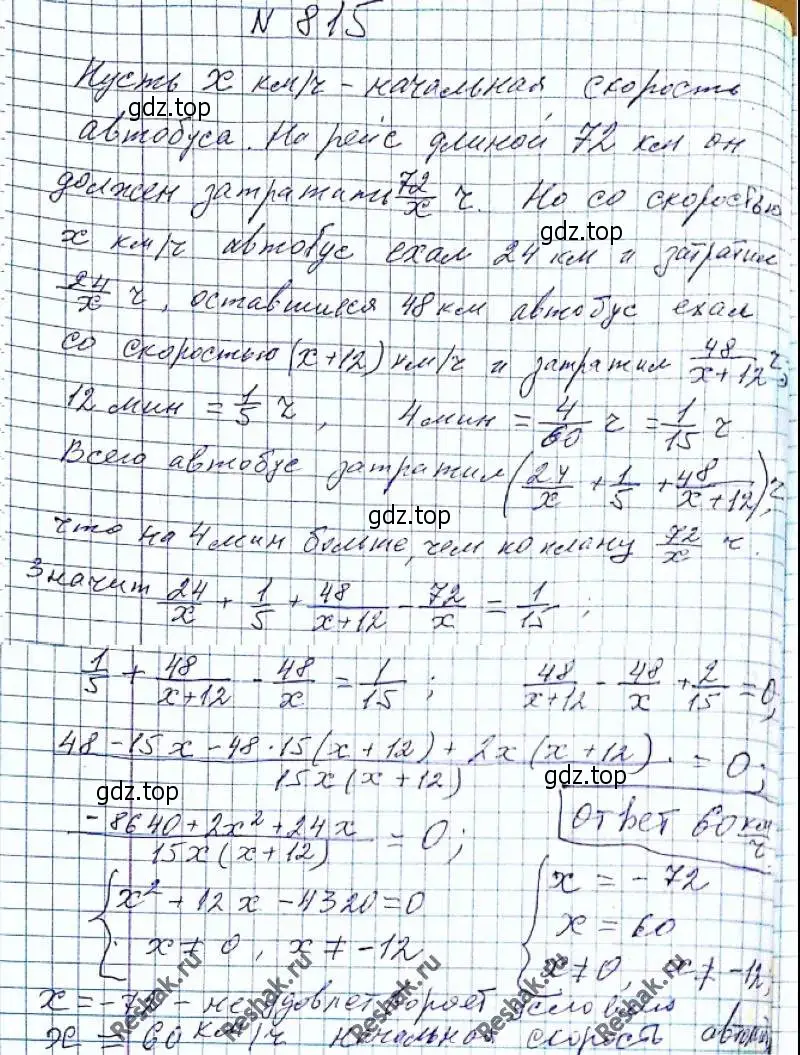 N 815
Пусть x км/ч - начальная скорость
gdz.top
автобуса. На рейс длиной 72 км он
должен затратить 72/x ч. Но со скоростью
gdz.top
x км/ч автобус ехал 24 км и затратил
24/x ч, оставшиеся 48 км автобус ехал
со скоростью (x+12) км/ч и затратил 48/(x+12) ч,
12 мин = 1/5 ч, 4 мин = 4/60 ч = 1/15 ч.
Всего автобус затратил (24/x + 1/5 + 48/(x+12)) ч,
gdz.top
что на 4 мин больше, чем по плану 72/x ч.
Значит 24/x + 1/5 + 48/(x+12) - 72/x = 1/15;
1/5 + 48/(x+12) - 48/x = 1/15; 48/(x+12) - 48/x + 2/15 = 0;
(48 - 15x - 48·15(x+12) + 2x(x+12))/(15x(x+12)) = 0;
gdz.top
(-8640 + 2x² + 24x)/(15x(x+12)) = 0; Ответ 60 км/ч.
{ x² + 12x - 4320 = 0 { x = -72
x = 60
x ≠ 0, x ≠ -12 x ≠ 0, x ≠ -12;
x = -72 - не удовлетворяет условию
x = 60 км/ч начальная скорость
Reshak.ru
Reshak.ru
Reshak.ru
Reshak.ru